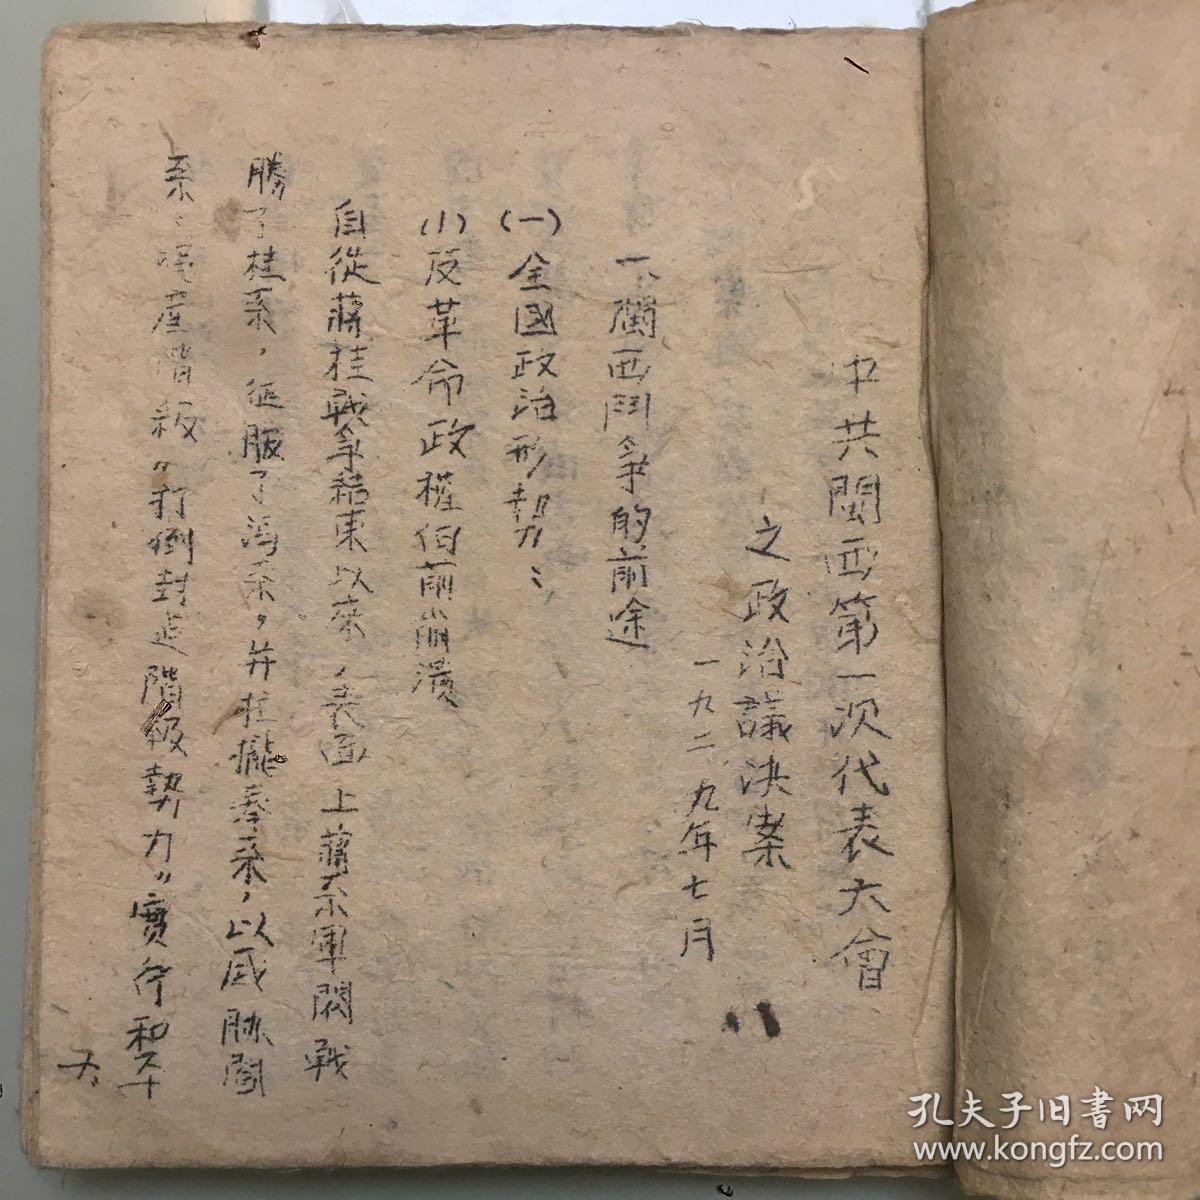 中共閩西第一次代表大會
之政治議決案
一九二九年七月
一、閩西鬥争的前途
(一)全國政治形勢:
(1)反革命政權的崩潰
自從蔣桂戰争結束以來,表面上蔣系軍閥戰
勝了桂系,征服了馮系,并拉攏奉系,以威脉閻
系,資産階級"打倒封建階級勢力"實行和平
六
孔夫子旧書网
www.kongfz.com